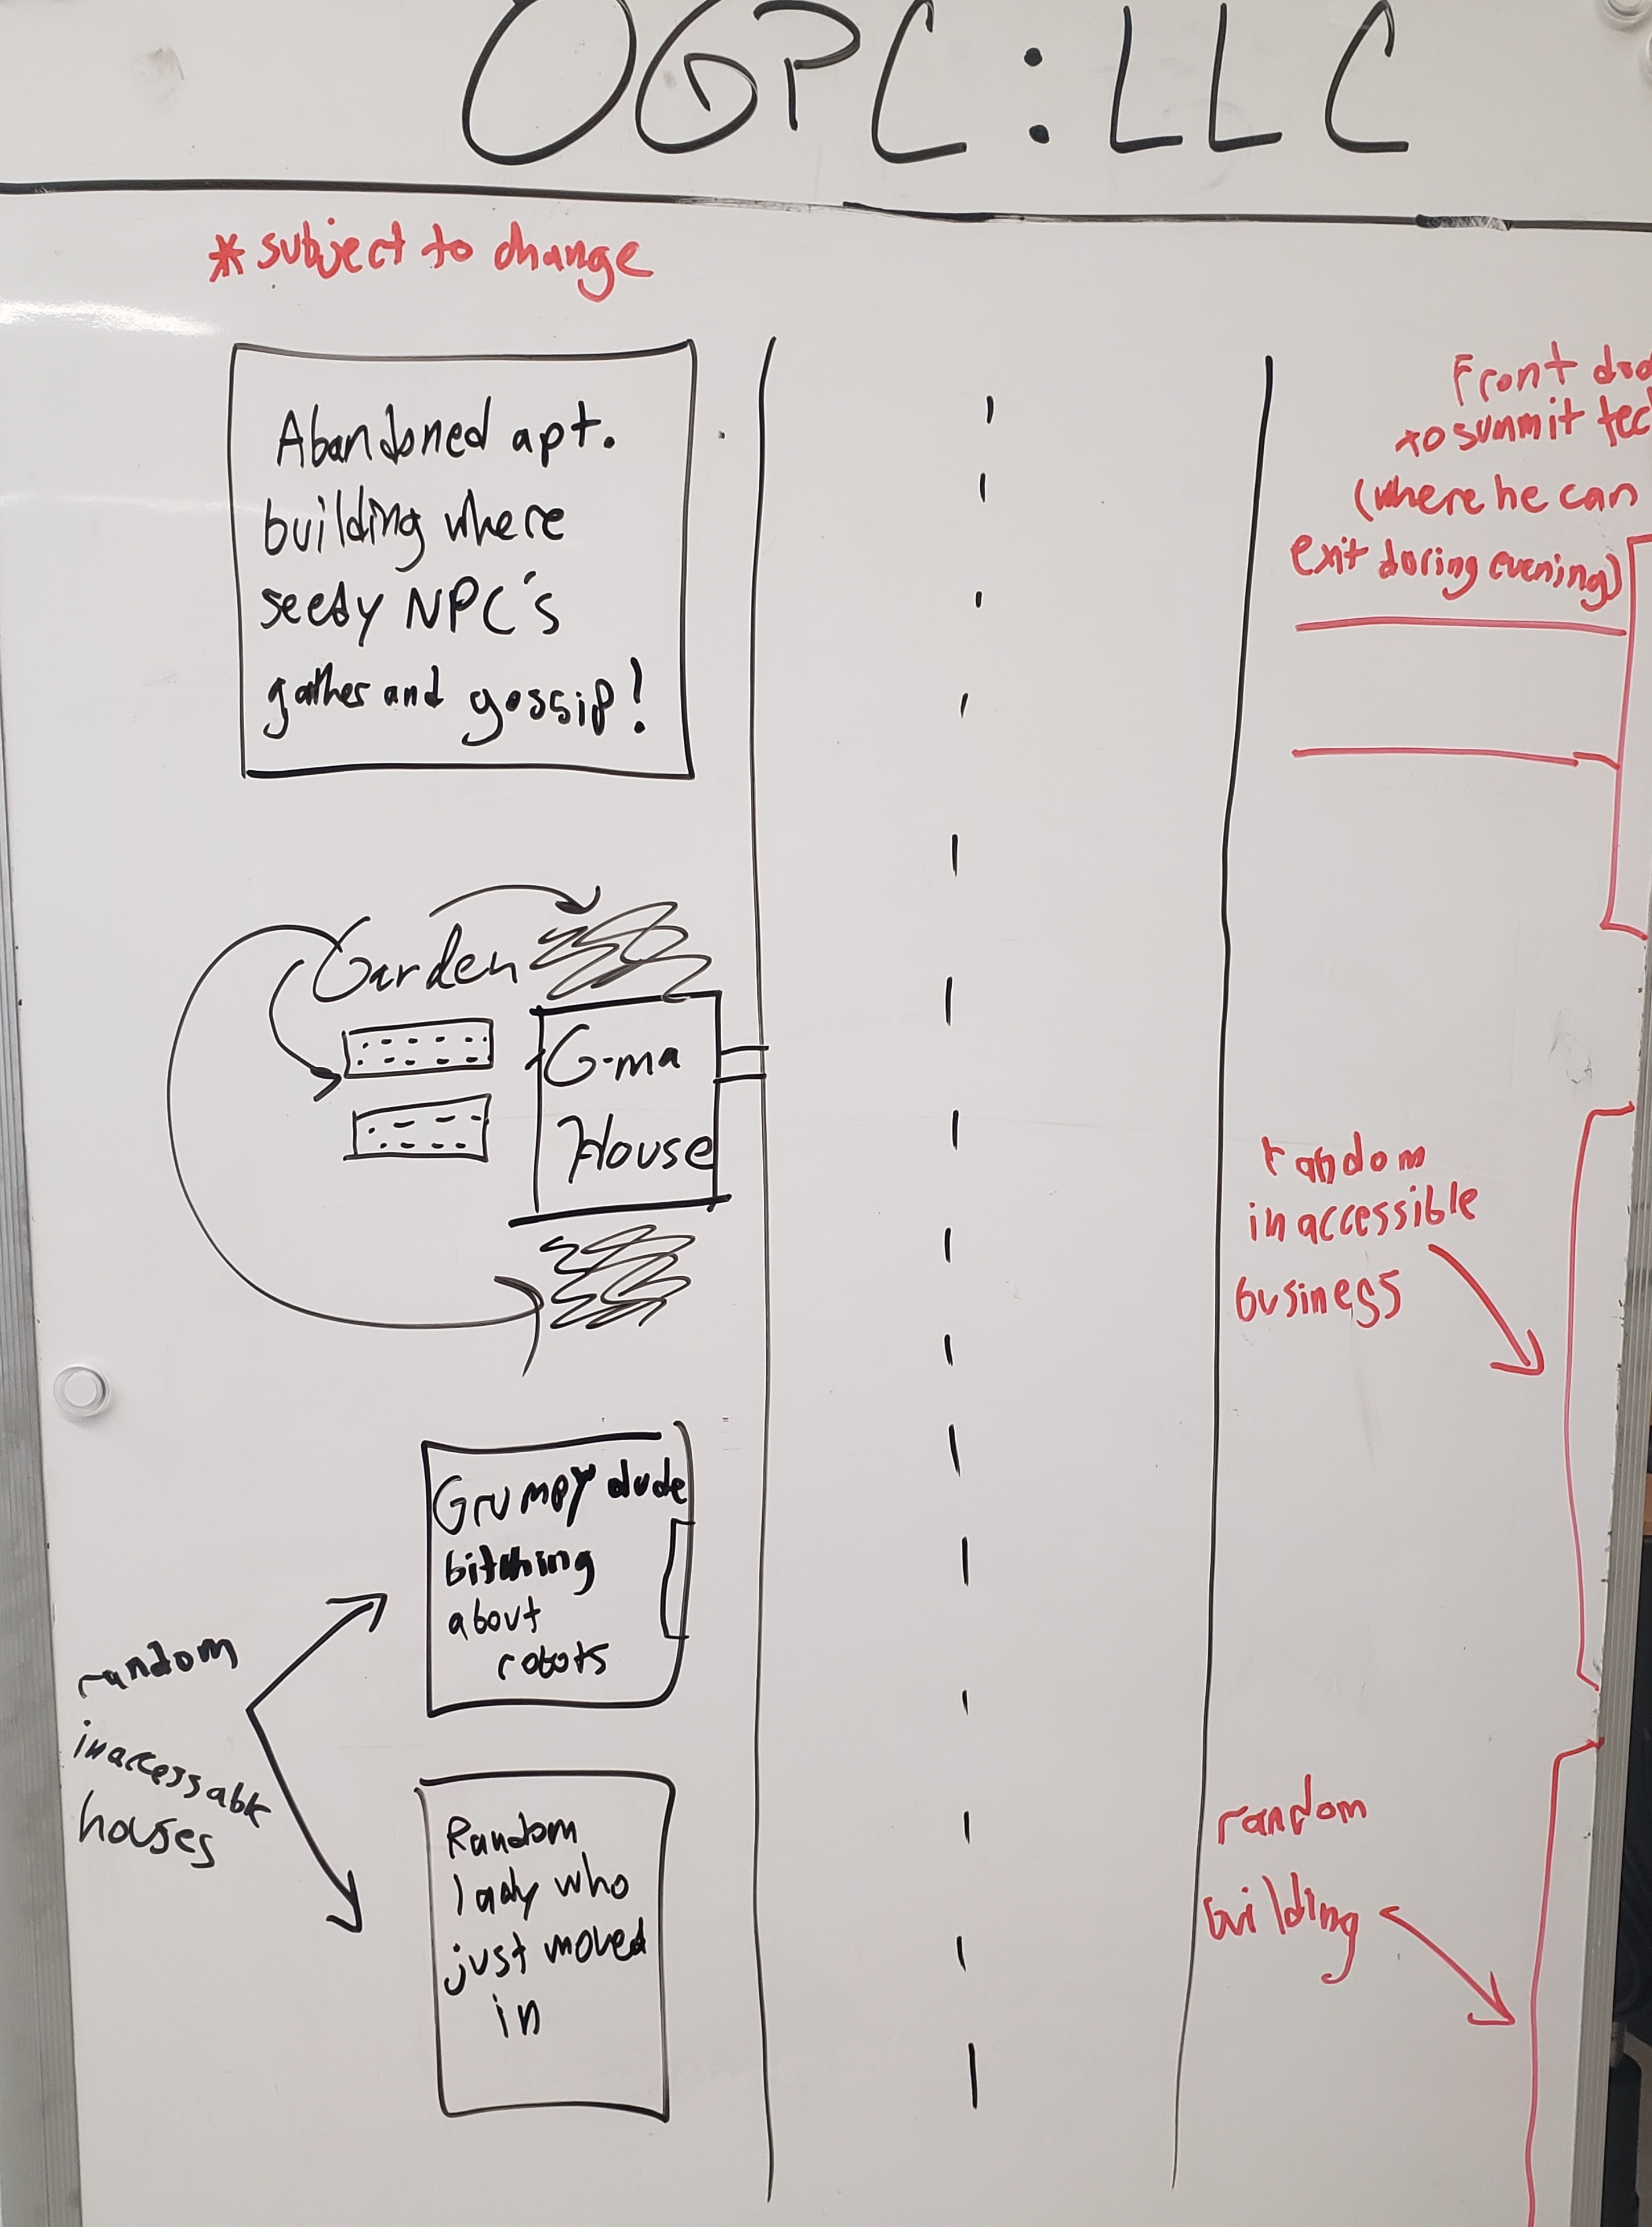 OGPC:LLC
* subject to change
Abandoned apt.
building where
seedy NPC's
gather and gossip!
Garden
G-ma
House
Grumpy dude
bitching
about
robots
random
inaccessable
houses
Random
lady who
just moved
in
Front
to summit
(where he can
exit during evening)
random
inaccessible
business
random
building